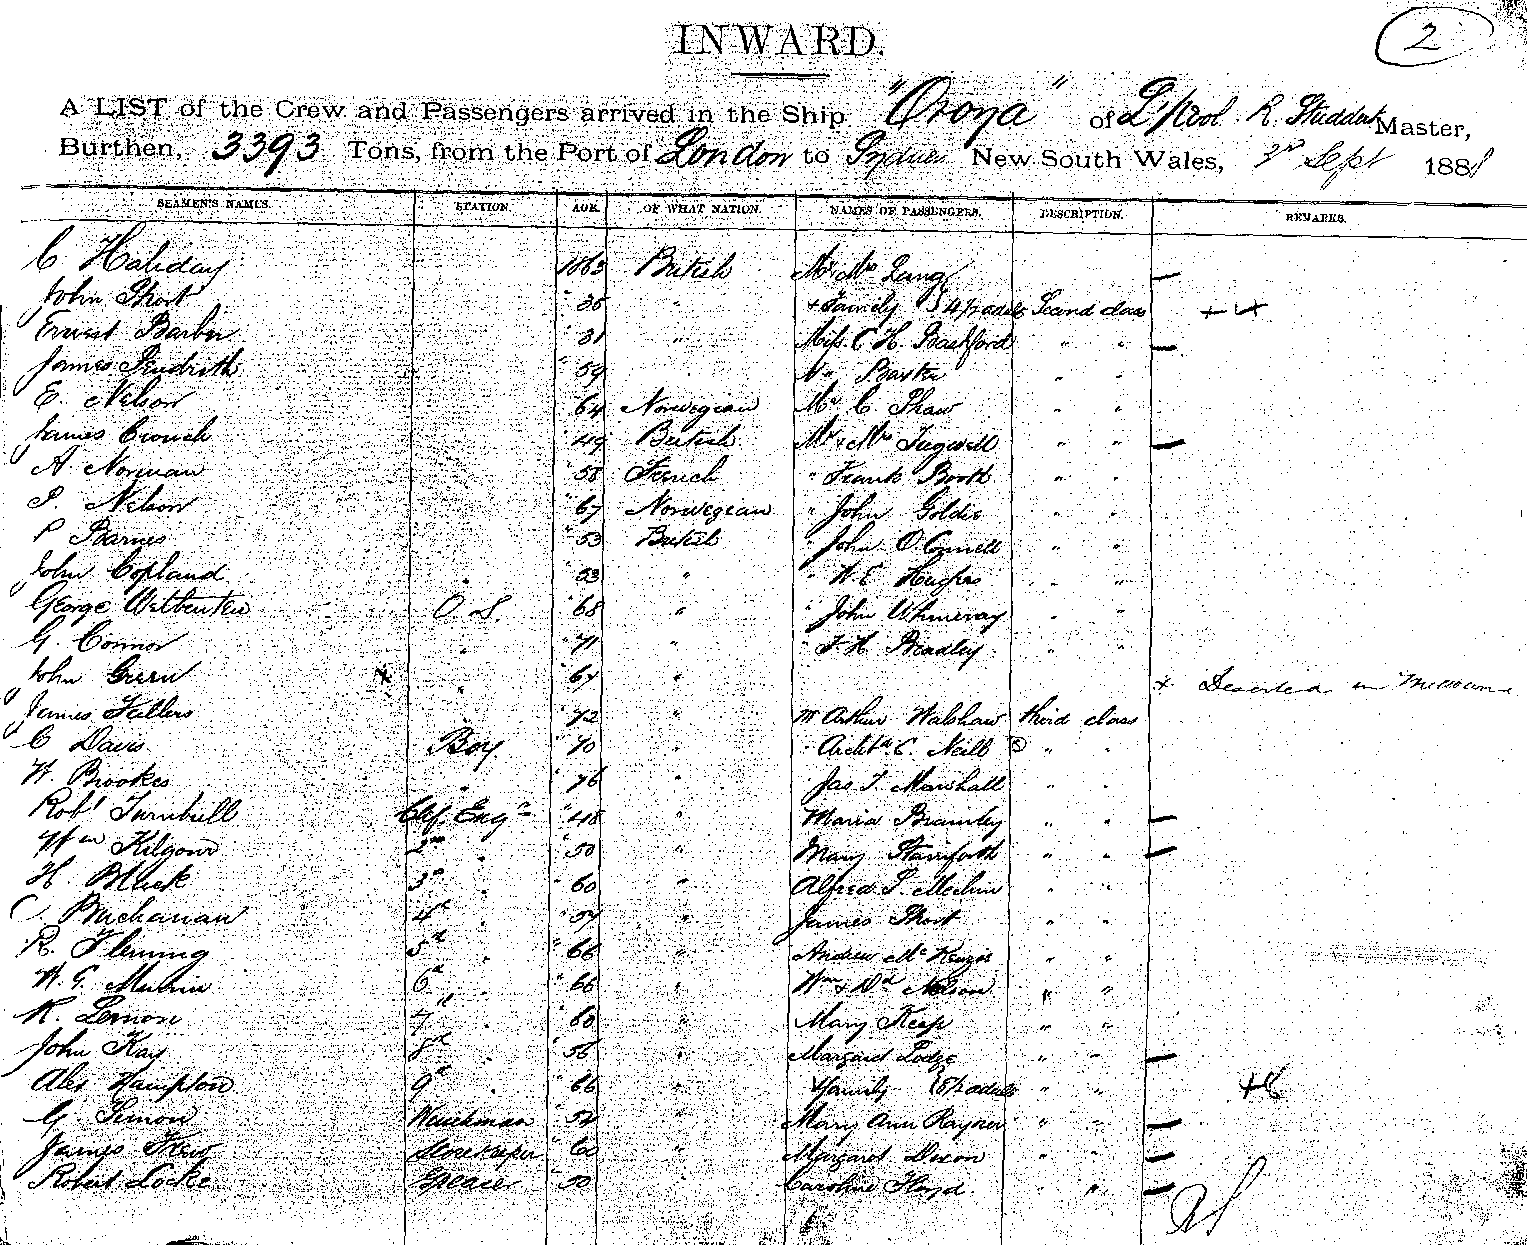 2
INWARD.
A LIST of the Crew and Passengers arrived in the Ship "Oroya" of L'pool R. Studdert Master,
Burthen, 3393 Tons, from the Port of London to Sydney New South Wales, Sept 188
SEAMEN'S NAMES. STATION. AGE. OF WHAT NATION. NAMES OF PASSENGERS. DESCRIPTION. REMARKS.
C Haliday 1863 British Mr Mrs Lang —
John Short " 36 " + Family Second class + 4
Ernest Barber " 31 " Miss C H. Bashford " " —
James " 59 " Baxter " "
E. Nelson " 64 Norwegian Mr C Shaw " "
James Crouch " 49 British Mr & Mrs Tugwell " " —
A. Norman " 58 French " Frank Booth " "
P. Nelson " 67 Norwegian " John Goldie " "
P Barnes " 53 British " John O'Connell " "
John Copland " 53 " " W. E Hughes " "
George O.S. " 68 " " John " "
G. Connor " " 71 " " Bradley " "
John Green x " " 67 " x Deserted in Melbourne
James Fullers " 72 " Mr Arthur Walshaw third class
C Davis Boy " 70 " " Archd C. Neill " "
W Brookes " " 76 " Jas T. Marshall " "
Robt Turnbull Chf Engr " 48 " Maria Bramley " " —
Wm Kilgour 2nd " " 50 " Mary Staniforth " " —
H. Black 3rd " " 60 " Alfred " "
C. Buchanan 4th " " 57 " James Short " "
R. Fleming 5th " " 66 " Andrew McKenzie " "
W. G. 6th " " 66 " Wm & Dd Nelson " "
R. Lemon 7th " " 60 " Mary Keep " "
John Kay 8th " " 56 " Margaret Lodge " " —
Alex Hampton 9th " " 66 " & family " " + 6
G. Watchman " 52 " Mary Ann Rayner " " —
James Storekeeper " 60 " Margaret Dixon " " —
Robert Locke Greaser " 50 " Caroline Floyd " " —